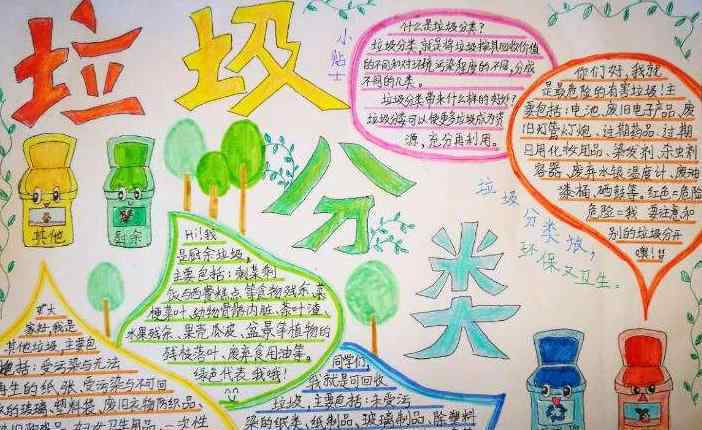 垃圾
分
类
小贴士
什么是垃圾分类?
垃圾分类,就是将垃圾按其回收价值
的不同和对环境污染程度的不同,分成
不同的几类。
垃圾分类带来什么样的好处?
垃圾分类可以使更多垃圾成为资
源,充分再利用。
你们好,我就
是最危险的有害垃圾!主
要包括:电池、废旧电子产品、废
旧灯管灯炮、过期药品、过期
日用化妆用品、染发剂、杀虫剂
容器、废弃水银温度计、废油
漆桶、硒鼓等。红色=危险
危险=我 要注意和
别的垃圾分开
噢!!
垃圾
分类放,
环保又卫生。
其他
厨余
Hi!我
是厨余垃圾,
主要包括:剩菜剩
饭与西餐糕点等食物残余、菜
梗菜叶、动物骨骼内脏、茶叶渣、
水果残余、果壳瓜皮、盆景等植物的
残枝落叶、废弃食用油等。
绿色代表我哦!
大
家好,我是
其他垃圾,主要包
括:受污染与无法
再生的纸张、受污染与不可回
的玻璃、塑料袋、废旧衣物纺织品、
妇女卫生用品、一次性
同学们,
我就是可回收
垃圾,主要包括:未受污
染的纸类、纸制品、玻璃制品、除塑料